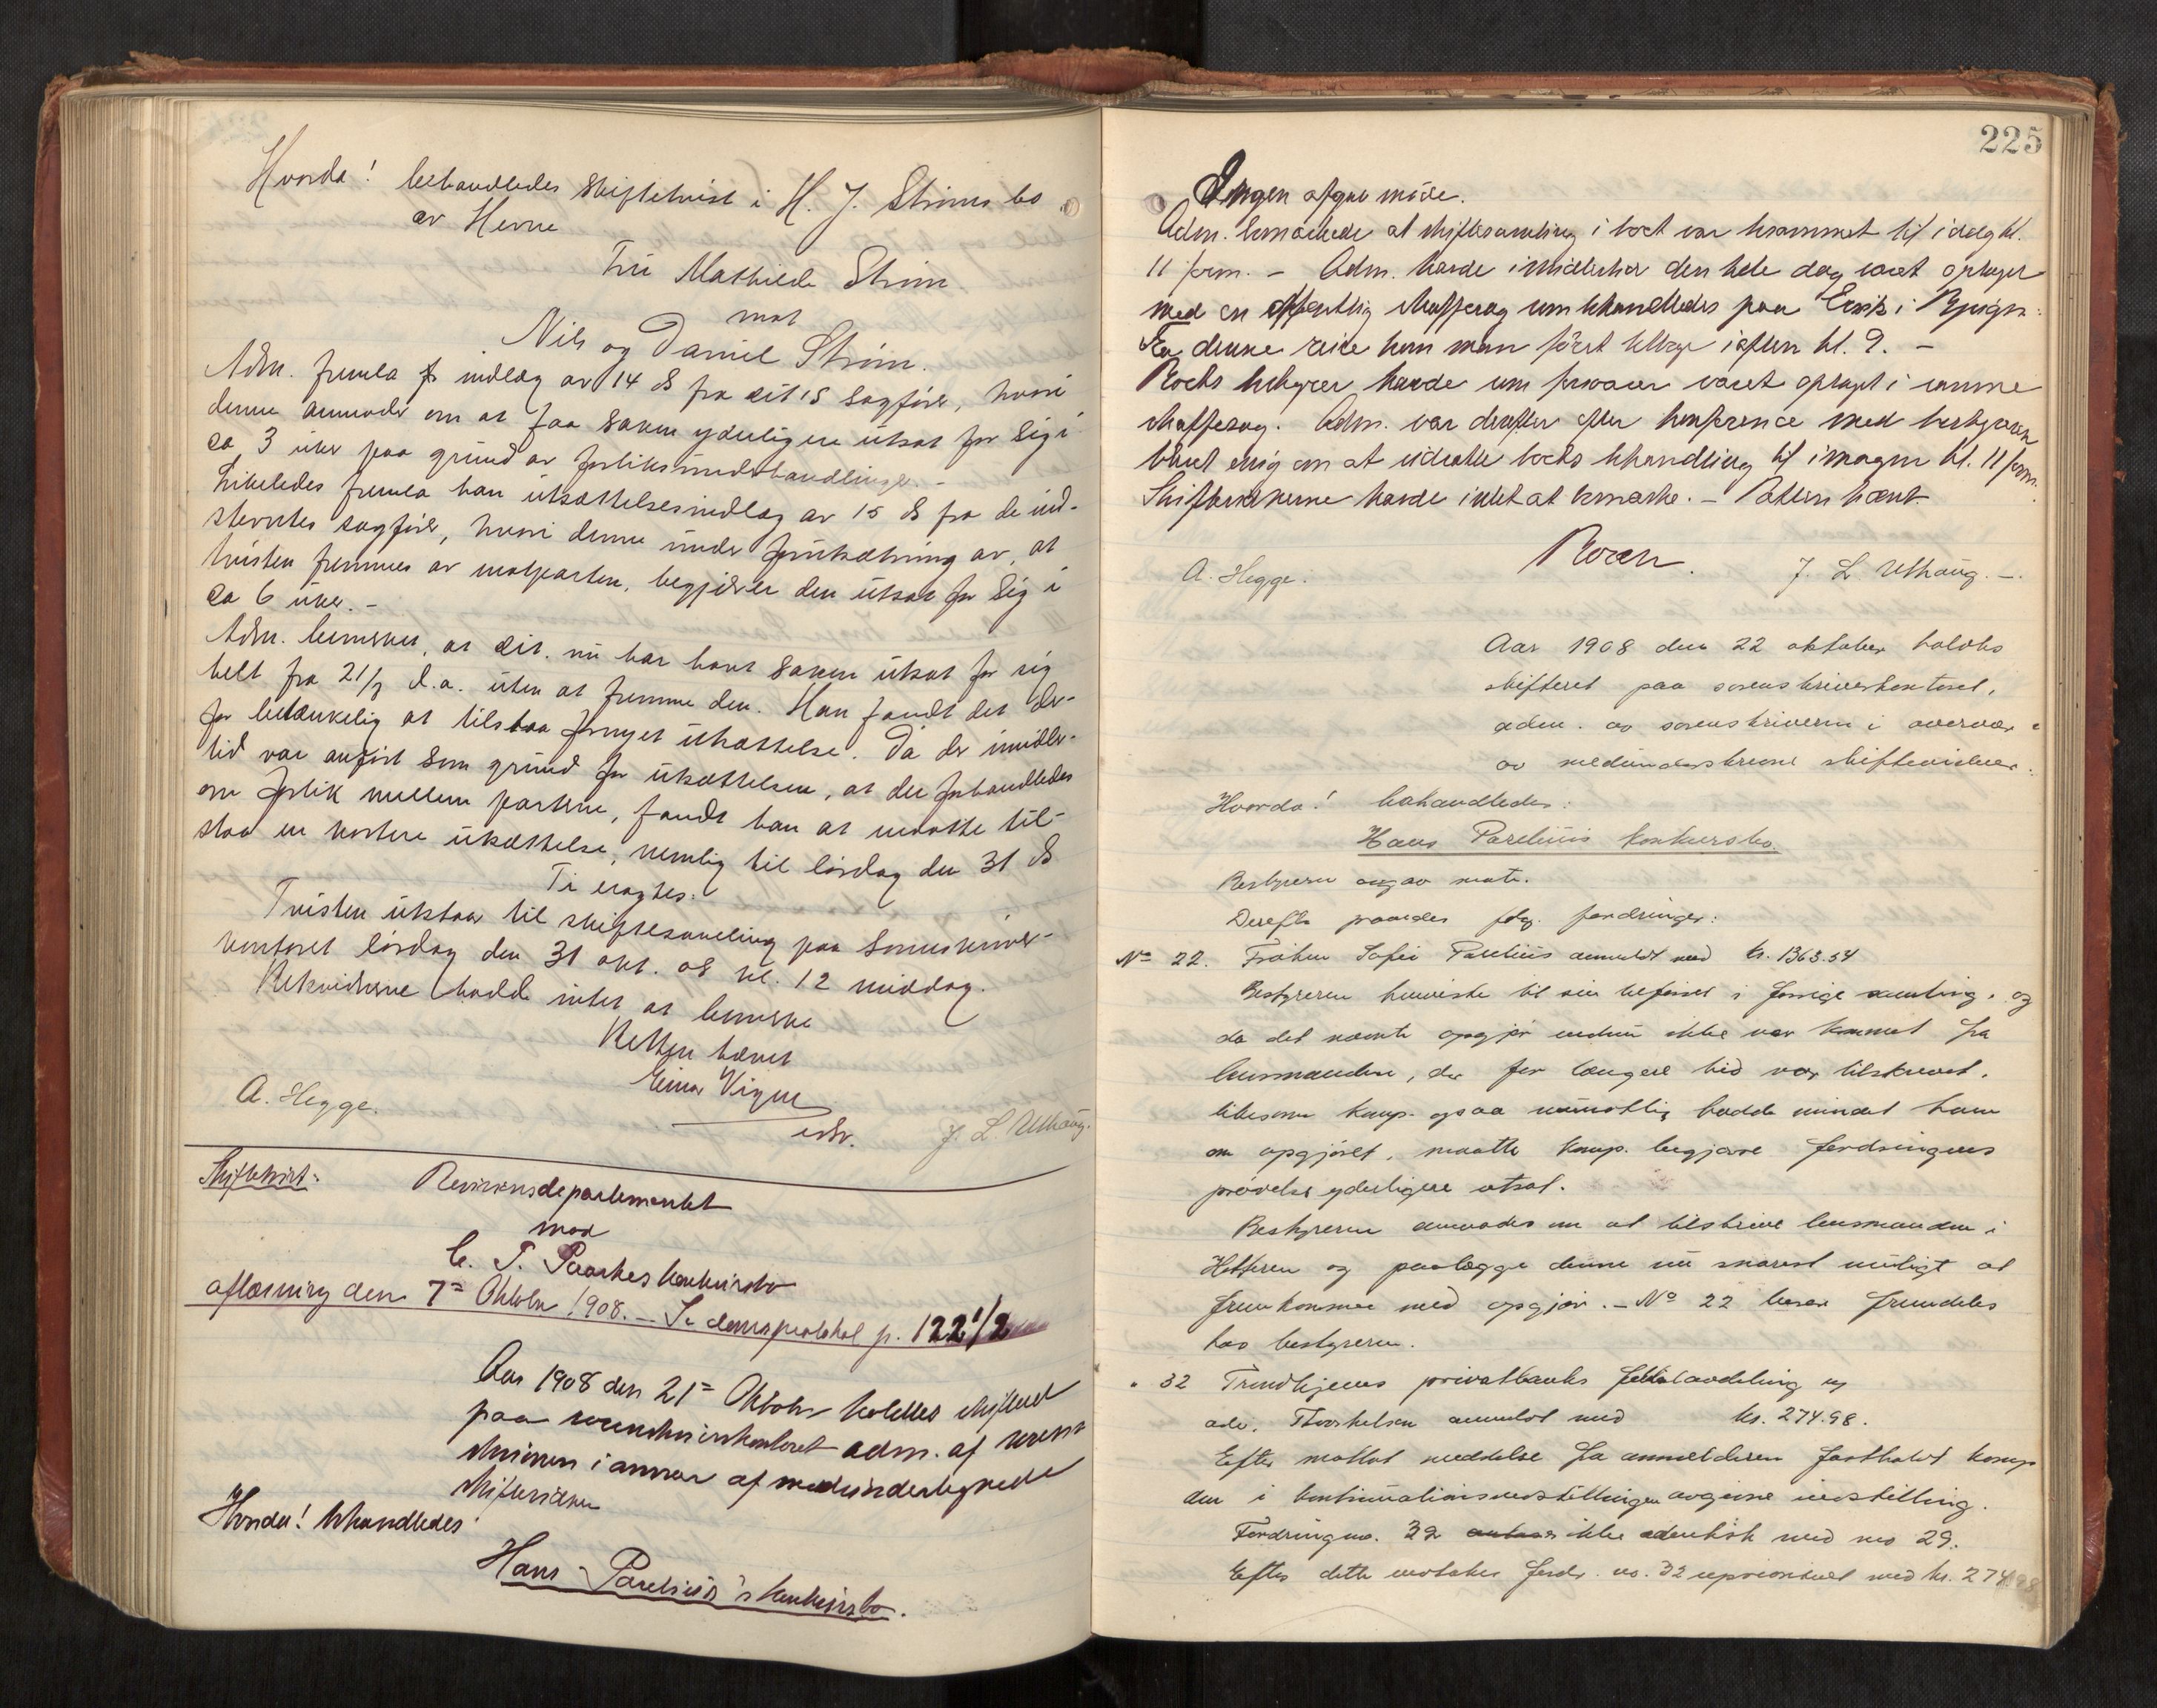 Hvorda! behandledes skiftetvist i H. J. Strøms bo
av Hevne
Fru Mathilde Strøm
mot
Nils og Daniel Strøm.
Adm. fremla indlæg av 14 ds fra cit.s sagfører, hvori
denne anmoder om at faa saken yderligere utsat for sig i
ca 3 uker paa grund av forliksunderhandlinger. -
Likeledes fremla han utsættelsesindlæg av 15 ds fra de ind-
stevntes sagfører, hvori denne under forutsætning av, at
tvisten fremmes av motparten, begjærer den utsat for sig i
ca 6 uker. -
Adm. bemerket, at cit. nu har havt saken utsat for sig
helt fra 21/7 d.a. uten at fremme den. Han fandt det der-
for betænkelig at tilstaa fornyet utsættelse. Da der imidler-
tid var anført som grund for utsættelsen, at der forhandledes
om forlik mellem parterne, fandt han at maatte til-
staa en kortere utsættelse, nemlig til lørdag den 31 ds
Ti eragtes:
Tvisten utstaar til skiftesamling paa sorenskriver-
kontoret lørdag den 31 okt. 08 kl. 12 middag.
Retsvidnene hadde intet at bemerke
Retten hævet
Einar Vigne
A. Hegge.
J. L. Uthaug.
Skiftetvist:
Revisionsdepartementet
mod
C. T. Paaskes konkursbo
aflæsning den 7= Oktober 1908. - Se domsprotokol p. 122 1/2
Aar 1908 den 21= Oktober holdtes skifteret
paa sorenskriverkontoret adm. af soren-
skriveren i annær af medundertegnede
skiftevidner
Hvorda! behandledes
Hans Parelius's konkursbo.
225
Ingen afgav møde.
Adm. bemærkede at skiftesamling i boet var berammet til idag kl.
11 form. - Adm. havde imidlertid den hele dag været optaget
med en offentlig straffesag som behandledes paa
Fra denne reise kom man først tilbage iaften kl. 9. -
Boets bestyrer havde som forsvarer været optaget i samme
straffesag. Adm. var derefter efter konference med bestyreren
blevet enig om at udsætte boets behandling til imorgen kl. 11 form.
Skiftevidnerne havde intet at bemærke. - Retten hævet
A. Hegge.
J. L Uthaug. -.
Aar 1908 den 22 oktober holdtes
skifteret paa sorenskriverkontoret,
adm. av sorenskriveren i overvær
av medunderskrevne skiftevidner.
Hvorda! behandledes:
Hans Parelius konkursbo.
Bestyreren avgav møte.
Derefter prøvedes følg. fordringer:
No 22. Frøken Sofie Parelius anmeldt med kr. 1363.54
Bestyreren henviste til sin tilførsel i forrige samling, og
da det nævnte opgjør endnu ikke var kommet fra
lensmanden, der for længere tid var tilskrevet,
likesom komp. ogsaa mundtlig hadde mindet ham
om opgjøret, maatte komp. begjære fordringens
prøvelse yderligere utsat.
Bestyreren anmodes om at tilskrive lensmanden i
Hitteren og paalægge denne nu snarest muligt at
fremkomme med opgjør. - No 22 beror fremdeles
hos bestyreren.
" 32 Trondhjems privatbanks avdeling v
adv. Thorkelsen anmeldt med kr. 274.98.
Efter mottat meddelse fra anmelderen fastholdt komp
den i kontinuationsinstillingen avgivne instilling.
Fordring no. 32 ikke identisk med no 29.
Efter dette mottakes fordr. no. 32 uprioritert med kr. 274.98